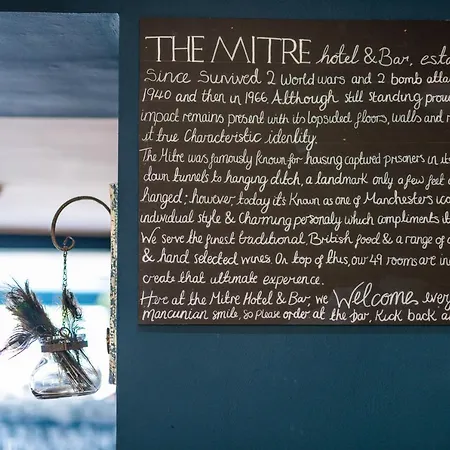 THE MITRE hotel & Bar, esta
Since Survived 2 World wars and 2 bomb atta
1940 and then in 1966. Although still standing prou
impact remains present with its lopsided floors, walls and r
it true Characteristic identity.
The Mitre was famously Known for haising captured prisoners in it
down tunnels to hanging ditch, a landmark only a few feet a
hanged; however, today it's Known as one of Manchesters ico
individual style & Charming personaly which compliments it
We serve the finest traditional, British food & a range of
& hand selected wines On top of this, our 49 rooms are in
creats that ultimate experience.
Here at the Mitre Hotel & Bar, we Welcome every
mancunian smile, so Please order at the bar, Kick back a